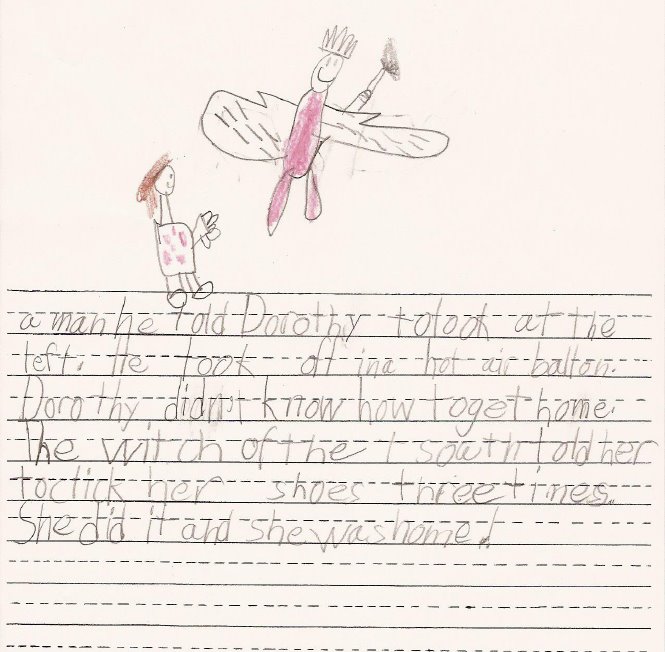 a man he told Dorothy to look at the
left. He took off in a hot air balton.
Dorothy didn't know how to get home.
The witch of the south told her
to click her shoes three times.
She did it and she was home!